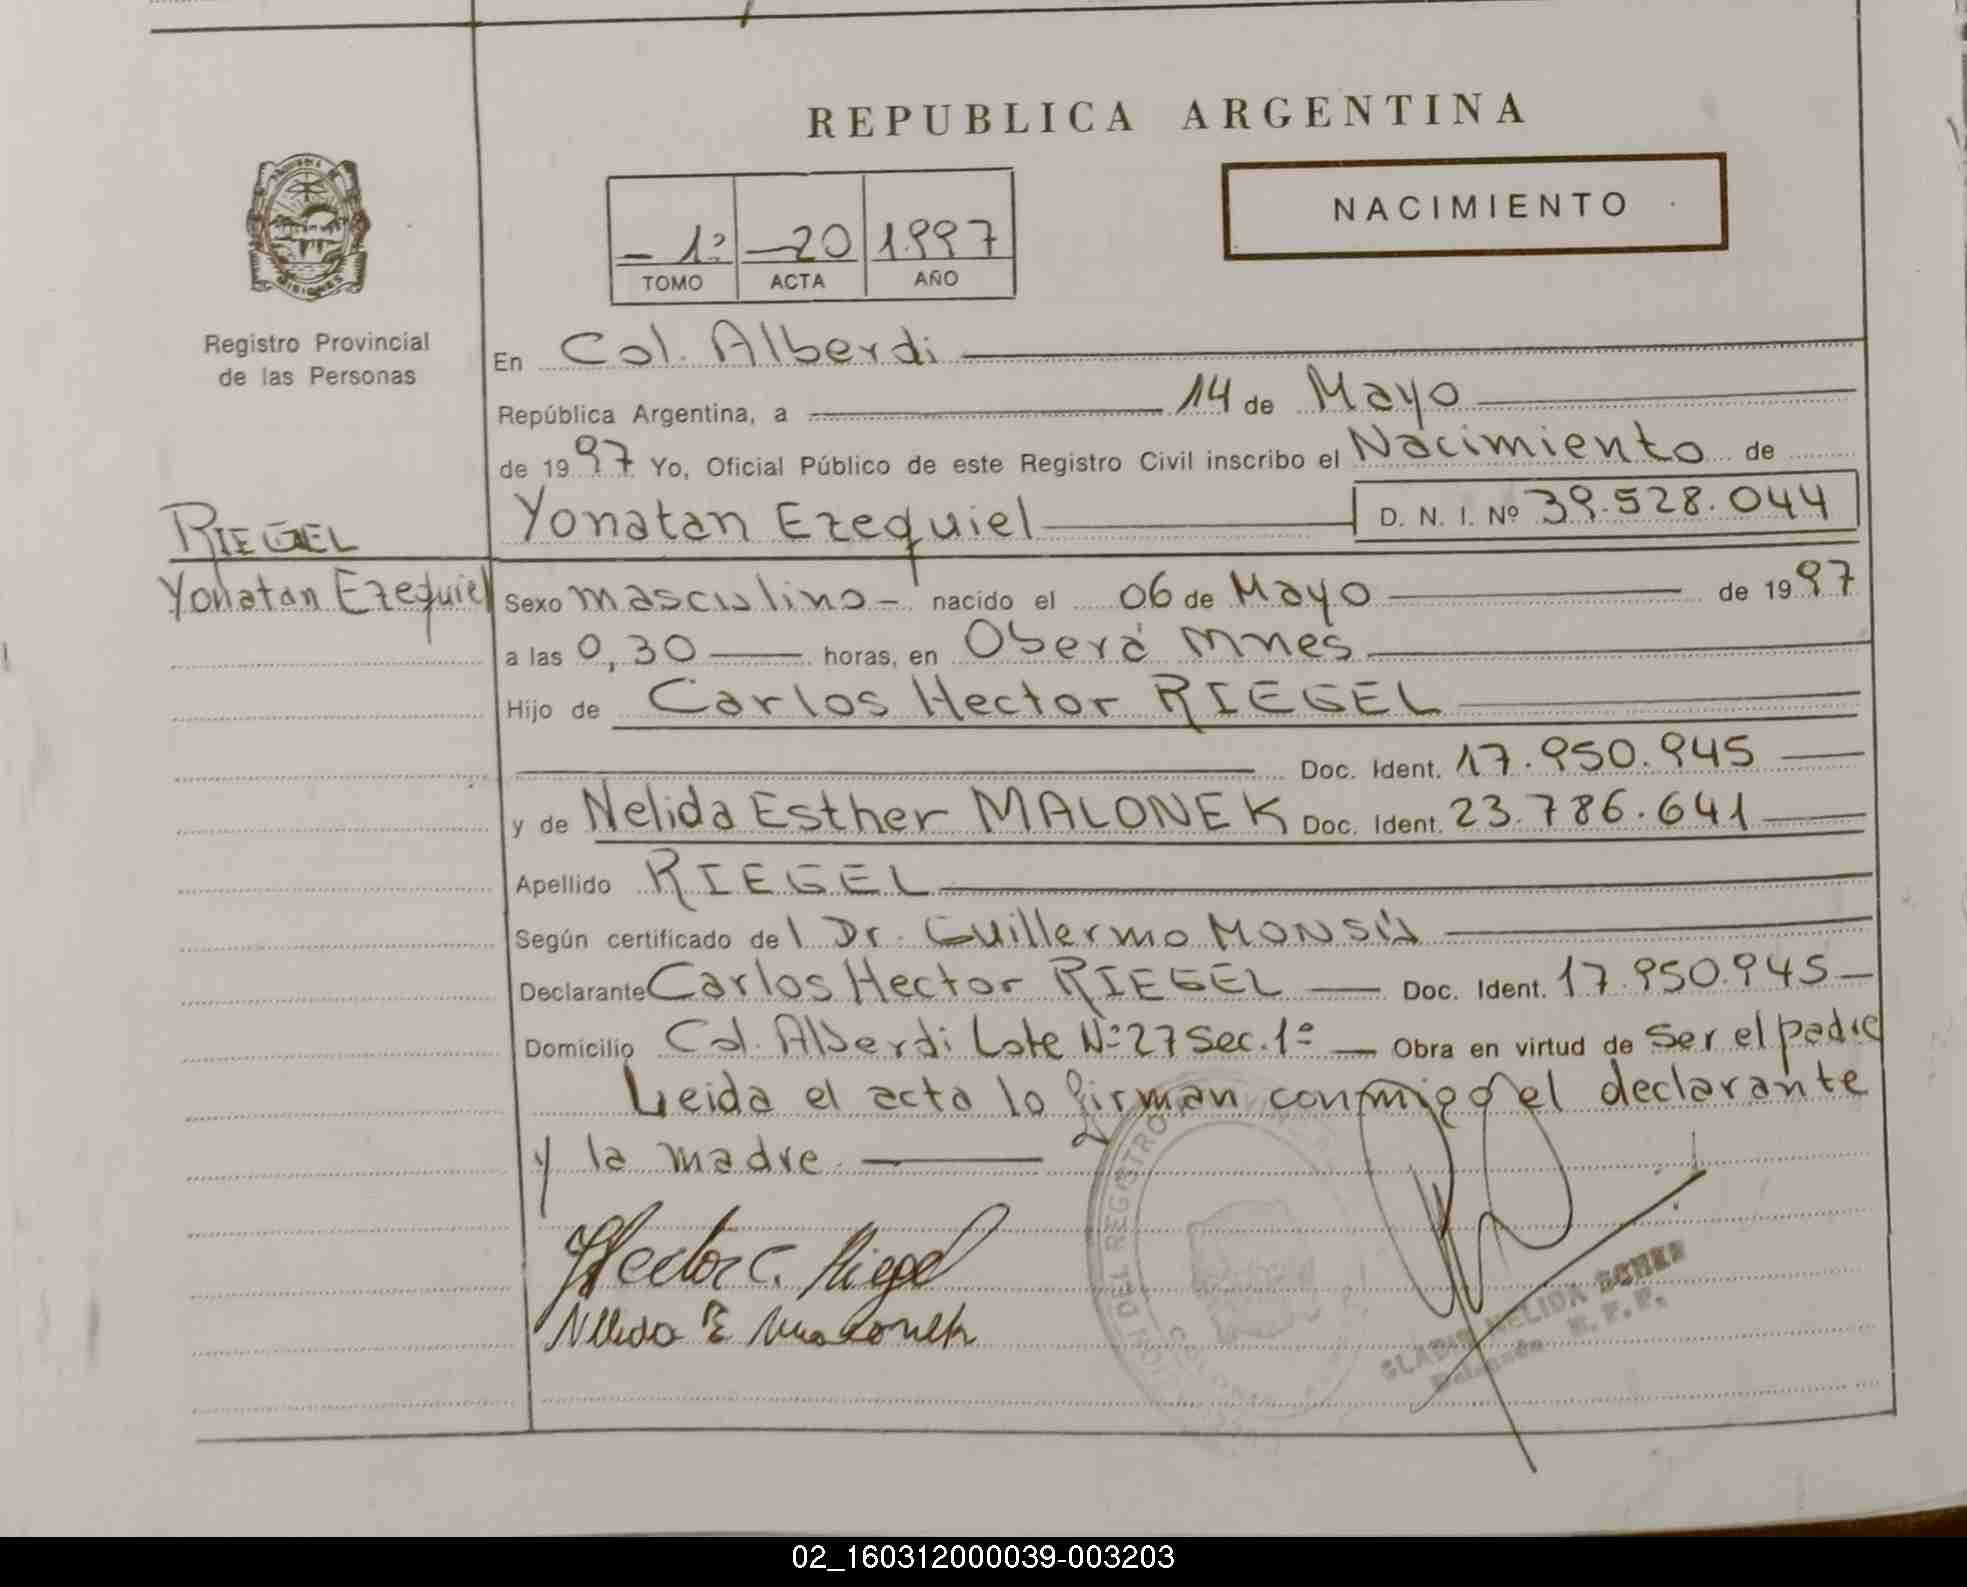 REPUBLICA ARGENTINA
NACIMIENTO
- 1º -20 1997
TOMO ACTA AÑO
Registro Provincial
de las Personas
En Col. Alberdi
República Argentina, a 14 de Mayo
de 1997 Yo, Oficial Público de este Registro Civil inscribo el Nacimiento de
Yonatan Ezequiel D. N. I. Nº 39.528.044
RIEGEL
Yonatan Ezequiel
Sexo masculino - nacido el 06 de Mayo de 1997
a las 0,30 horas, en Oberá Mnes
Hijo de Carlos Hector RIEGEL
Doc. Ident. 17.950.945
y de Nelida Esther MALONEK Doc. Ident. 23.786.641
Apellido RIEGEL
Según certificado del Dr. Guillermo
Declarante Carlos Hector RIEGEL Doc. Ident. 17.950.945
Domicilio Col. Alberdi Lote Nº 27 Sec. 1º Obra en virtud de ser el padre
Leida el acta lo firman conmigo el declarante
y la madre
Hector C. Riegel
Nelida E Malonek
DEL REGISTRO
NELIDA
02_160312000039-003203